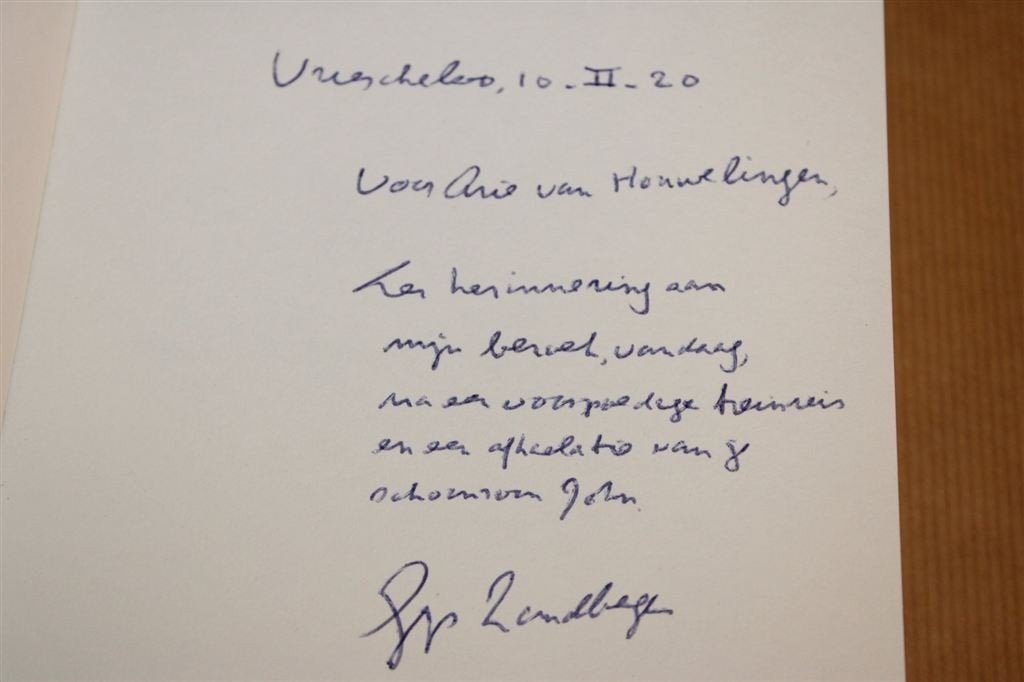 Vriescheloo, 10-II-20
Voor Arie van Houwelingen,
Ter herinnering aan
mijn bezoek, vandaag,
na een voorspoedige treinreis
en een afhaalactie van je
schoonzoon John.
Gijs Zandbergen